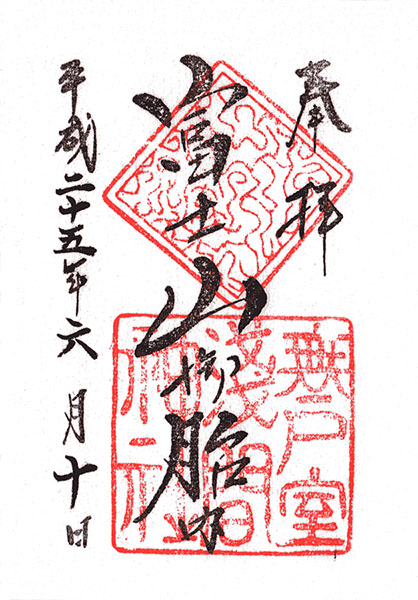 奉拝
富士山御胎内
平成二十五年六月十日
無戸室
淺間
神社